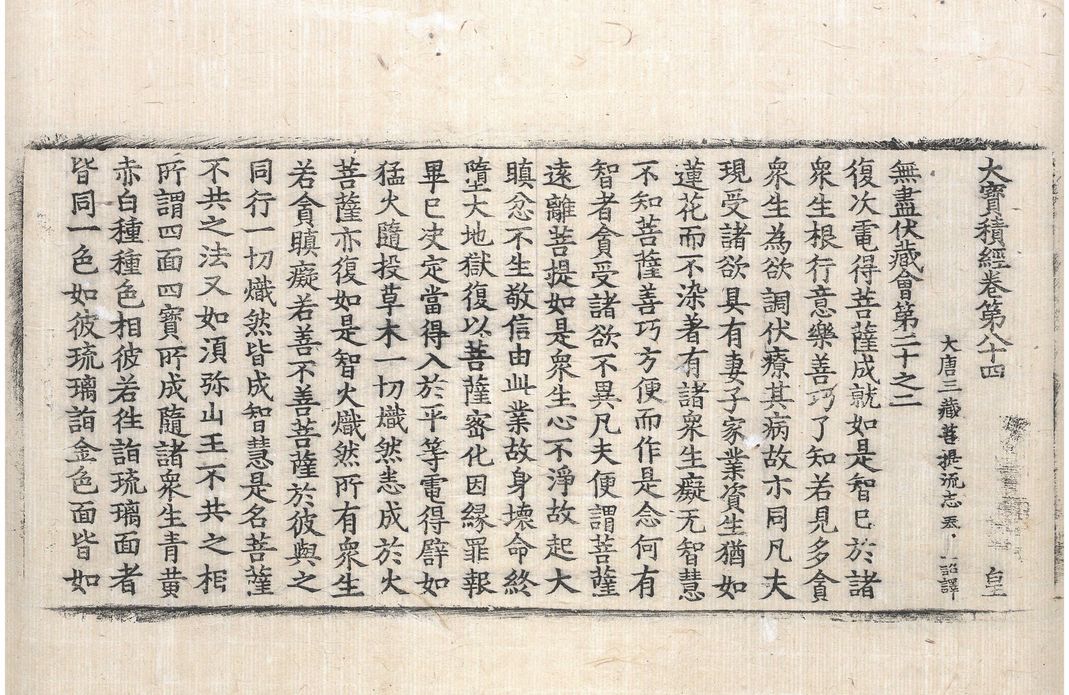 大寶積經卷第八十四 皇
大唐三藏菩提流志奉 詔譯
無盡伏藏會第二十之二
復次電得菩薩成就如是智已於諸
衆生根行意樂善巧了知若見多貪
衆生為欲調伏療其病故亦同凡夫
現受諸欲具有妻子家業資生猶如
蓮花而不染著有諸衆生癡无智慧
不知菩薩善巧方便而作是念何有
智者貪受諸欲不異凡夫便謂菩薩
遠離菩提如是衆生心不淨故起大
瞋忿不生敬信由此業故身壞命終
墮大地獄復以菩薩密化因緣罪報
畢已决定當得入於平等電得譬如
猛火隨投草木一切熾然悉成於火
菩薩亦復如是智火熾然所有衆生
若貪瞋癡若善不善菩薩於彼與之
同行一切熾然皆成智慧是名菩薩
不共之法又如湏弥山王不共之相
所謂四面四寶所成隨諸衆生青黃
赤白種種色相彼若往詣琉璃面者
皆同一色如彼琉璃詣金色面皆如